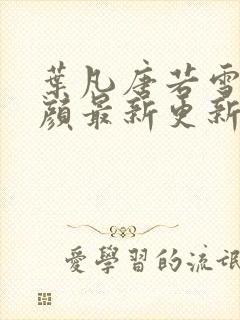 葉凡唐若雪
顔最新更新
愛學習的流氓